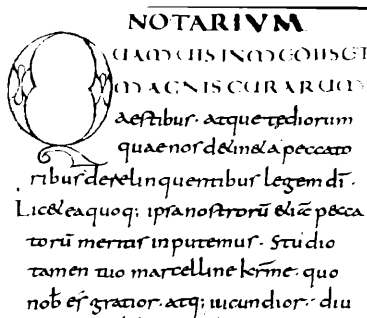 NOTARIVM
QUAMUIS IN MEDIIS ET
MAGNIS CURARUM
aestibus· atque tediorum
quae nos d&in& a peccato
ribus derelinquentibus legem dī·
Lic& ea quoq; ipsa nostrorū &iā pecca
torū meritis inputemus· Studio
tamen tuo marcelline krm̄e· quo
nob̄ es gratior· atq; iucundior· diu